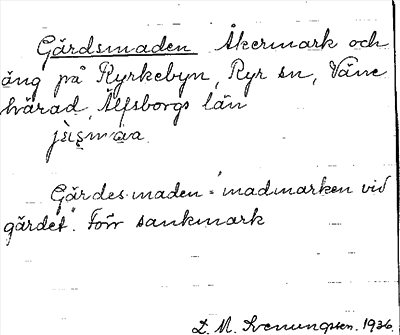 Gärdsmaden Åkermark och
äng på Kyrkebyn, Ryr sn, Väne
härad, Älfsborgs län
Gärdesmaden = "madmarken vid
gärdet". Förr sankmark
1936.